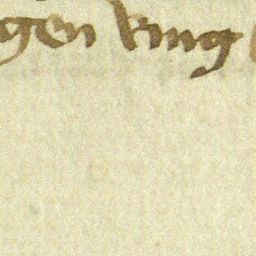 gen king